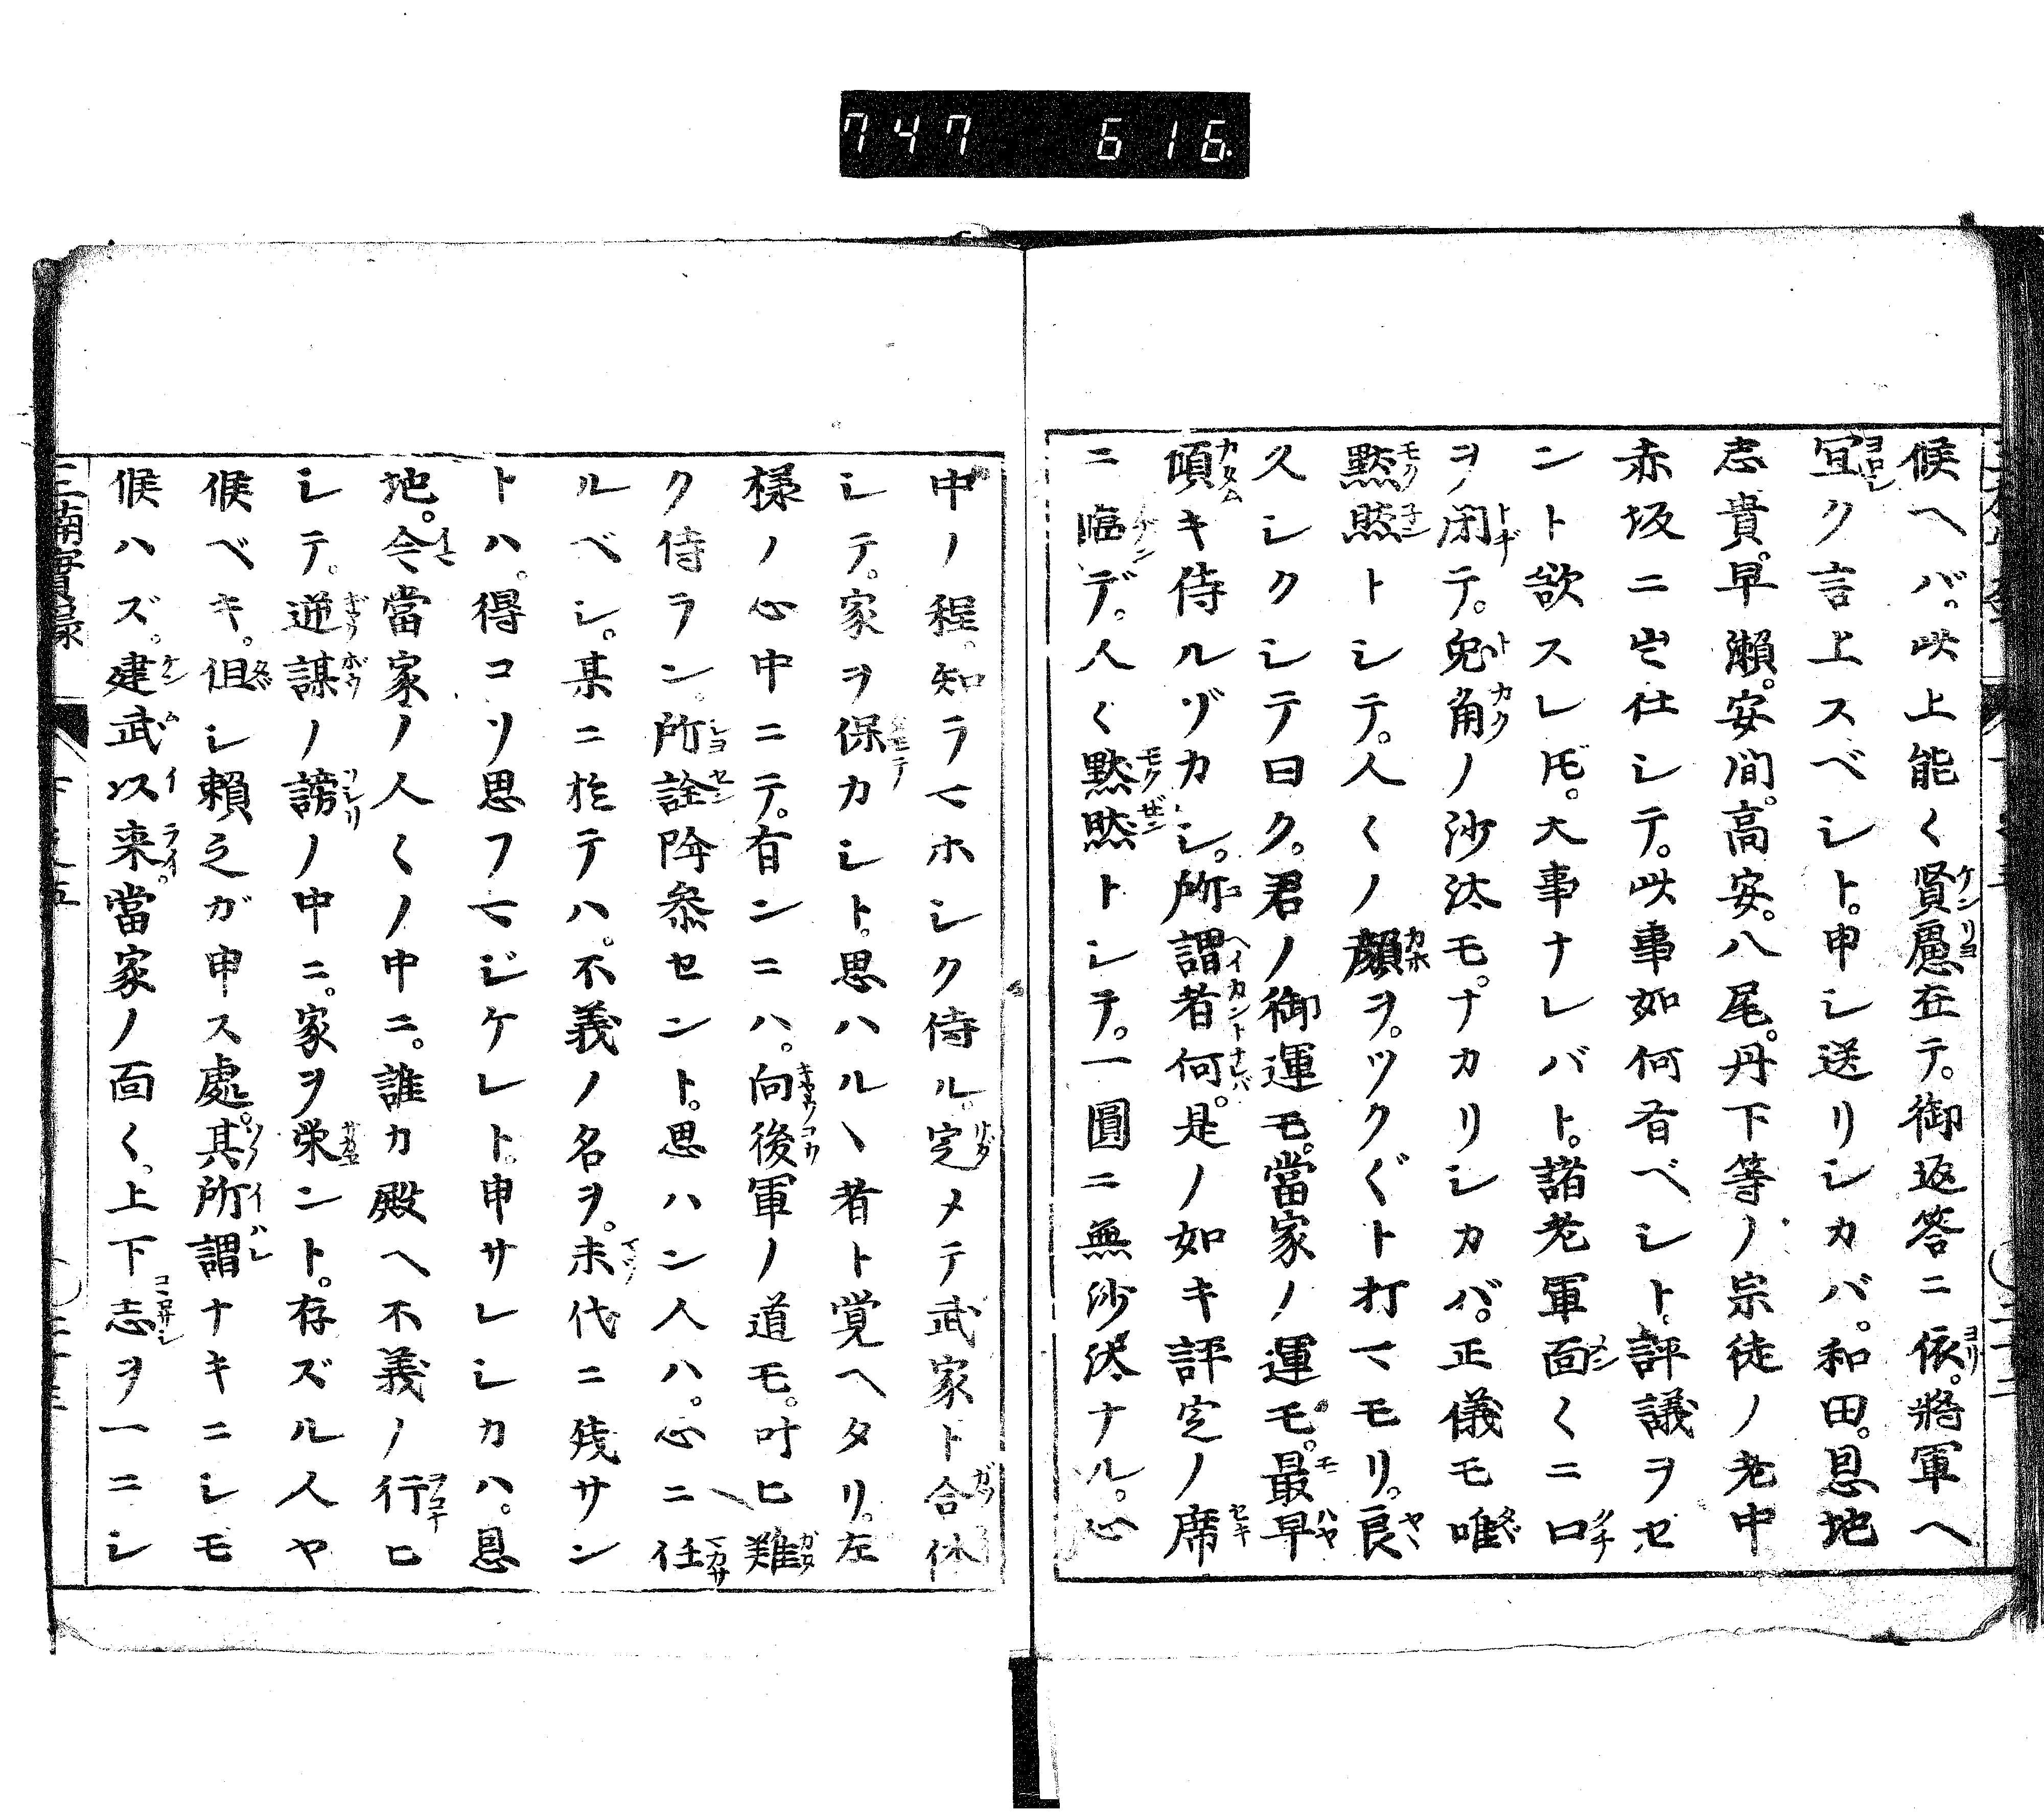 747 616
候ヘバ。此上能く賢慮在テ。御返答ニ依。將軍ヘ
宜ク言上スベシト。申シ送リシカバ。和田。恩地
志貴。早瀬。安間。高安。八尾。丹下等ノ宗徒ノ老中
赤坂ニ出仕シテ。此事如何有ベシト。評議ヲセ
ント欲スレ𪜈。大事ナレバト。諸老軍面くニ口
ヲ閉テ。兎角ノ沙汰モ。ナカリシカバ。正儀モ唯
黙然トシテ。人くノ顔ヲ。ツクぐト打マモリ。良
久シクシテ曰ク。君ノ御運モ。當家ノ運モ。最早
頃キ侍ルヅカシ。所謂者何。是ノ如キ評定ノ席
ニ臨デ。人く黙然トシテ。一圓ニ無沙汰ナル。心
中ノ程。知ラマホシク侍ル。定メテ武家ト合体
シテ。家ヲ保カシト。思ハルヽ者ト覚ヘタリ。左
様ノ心中ニテ。有ンニハ。向後軍ノ道モ。叶ヒ難
ク侍ラン。所詮降参セント。思ハン人ハ。心ニ任
ルベシ。某ニ於テハ。不義ノ名ヲ。末代ニ残サン
トハ。得コソ思フマジケレト。申サレシカハ。恩
地。今當家ノ人くノ中ニ。誰カ殿ヘ不義ノ行ヒ
シテ。逆謀ノ謗ノ中ニ。家ヲ栄ント。存ズル人ヤ
候ベキ。但シ頼之ガ申ス處。其所謂ナキニシモ
候ハズ。建武以来。當家ノ面く。上下志ヲ一ニシ